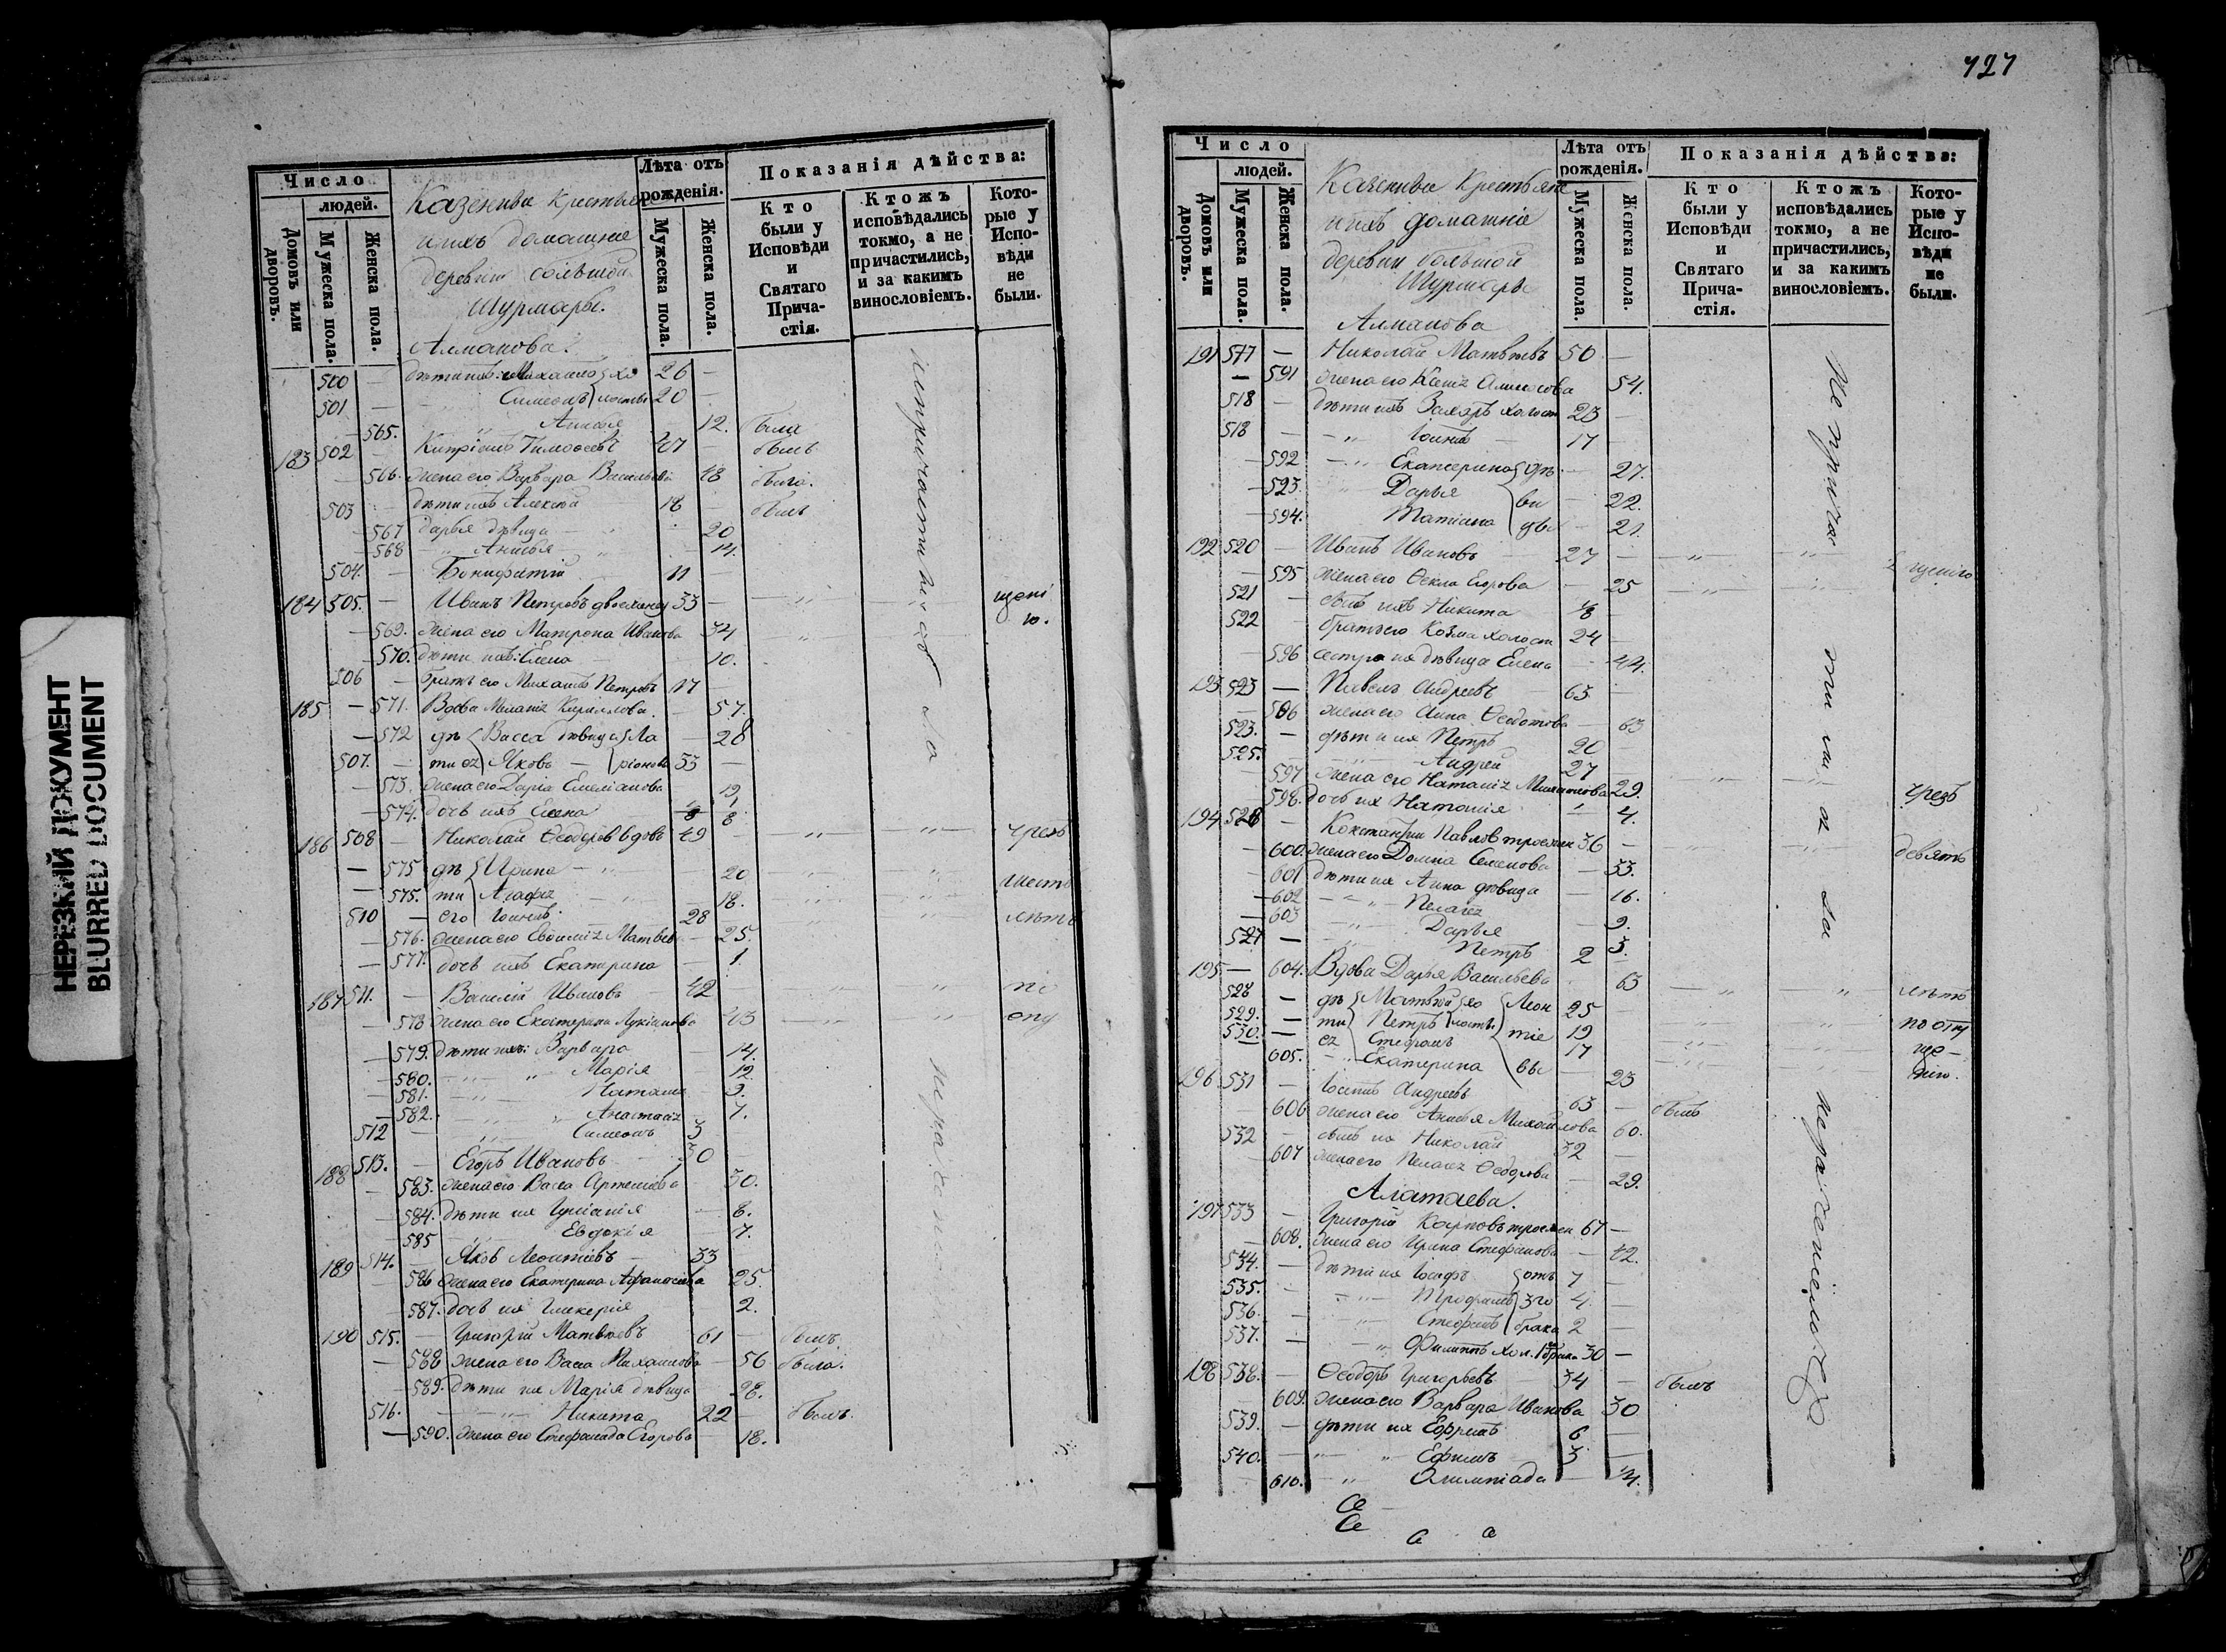 НЕРЕЗКИЙ ДОКУМЕНТ
BLURRED DOCUMENT
Число
людей.
Домовъ или дворовъ.
Мужеска пола.
Женска пола.
Казенныя Крестьяне
и ихъ домашніе
деревни большой
Шурмары.
Алманова.
Лѣта отъ рожденія.
Мужеска пола.
Женска пола.
Показанія дѣйства:
Кто были у Исповѣди и Святаго Прича-стія.
Ктожъ исповѣдались токмо, а не причастились, и за какимъ винословіемъ.
Кото-рые у Испо-вѣди не были.
500 — дѣти ихъ: Михаилъ хо 26 —
501 — Симеонъ лостые 20 —
— 565. Анисья 12. была
183 502 — Кипріянъ Тимофеевъ 47 — былъ
— 566. жена его Варвара Васильева 48 была.
503 — дѣти ихъ Алексѣй 18 — былъ
— 567 Дарья дѣвица 20
— 568 Анисья 14.
504. — Бонифатій 11
184 505. — Иванъ Петровъ двоеженец 33 —
— 569. жена его Матрона Иванова 34
— 570. дѣти ихъ: Елена 10.
506 — братъ его Михаилъ Петровъ 17 —
185 — 571. Вдова Меланія Кириллова. — 57.
— 572 дѣ Васса дѣвица Ла — 28
507. — ти ея Яковъ — ріоновы 33 —
— 573. жена его Дарія Емеліанова 19
— 574. дочь ихъ Елена
186 508 — Николай Ѳеодоровъ вдовъ 49 — чрезъ
— 575 дѣ Ирина — 20 шесть
— 575. ти Агафія 18.
510 — его Іоаннъ 28 лѣтъ
— 576. жена его Евдокія Матвѣева — 25.
— 577. дочь ихъ Екатерина — 1.
187 511. — Василій Ивановъ 42 по
— 578 жена его Екатерина Лукіанова 43 опу
— 579. дѣти ихъ: Варвара — 14.
— 580. Марія — 12
— 581. Наталія 9.
— 582. Анастасія 7.
512 — Симеонъ 3
188 513. — Егоръ Ивановъ 30 —
— 583. жена его Васса Артемьева 30.
— 584. дѣти ихъ Іуліанія 8.
585 Евдокія 7.
189 514. — Яковъ Леонтіевъ 33
— 586 жена его Екатерина Афанасьева 25.
— 587. дочь ихъ Гликерія 2.
190 515. — Григорій Матвѣевъ 61 — былъ.
— 588 жена его Васса Михаилова — 56 была.
— 589. дѣти ихъ Марія дѣвица 28.
516. — Никита 22 — былъ.
— 590. жена его Стефанида Егорова 18.
727
Число
людей.
Домовъ или дворовъ.
Мужеска пола.
Женска пола.
Казенныя Крестьяне
и ихъ домашніе
деревни большой
Шурмары
Алманова
Лѣта отъ рожденія.
Мужеска пола.
Женска пола.
Показанія дѣйства:
Кто были у Исповѣди и Святаго Прича-стія.
Ктожъ исповѣдались токмо, а не причастились, и за какимъ винословіемъ.
Кото-рые у Испо-вѣди не были.
191 517 — Николай Матвѣевъ 50 —
— 591 жена его 54.
518 — дѣти ихъ Захаръ холост 23 —
518 — Іоаннъ 17
— 592 Екатерина дѣ 27.
— 593. Дарья ви 22.
— 594. Татіана цы 21.
192 520 — Иванъ Ивановъ 27 —
— 595 жена его Ѳекла Егорова — 25
521 — сынъ ихъ Никита
522 — братъ его Козма холост 24 —
— 596 сестра ихъ дѣвица Елена 44.
193 523 — Павелъ Андреевъ 63 —
— 506 жена его Анна Ѳедотова — 63
523. — дѣти ихъ Петръ 20 —
525. — Андрей 27
— 597 жена его Наталія Михаилова 29.
— 598. дочь ихъ Наталія 4. чрезъ
194 526 — Констанѳин Павловъ троежен 36 — девять
— 600. жена его Домна Семенова 33.
— 601 дѣти ихъ Анна дѣвица — 16.
— 602 Пелагея 9.
— 603 Дарья 3.
527 — Петръ 2
195 — 604. Вдова Дарья Васильева 63 лѣтъ
528 — дѣ Матвѣй хо Леон 25 по опу
529. — ти Петръ лосты тіе 19 ще-
530. — ея Стефанъ 17 нію.
605. Екатерина вы — 23
196 531 — Іосифъ Андреевъ 63 — былъ
606 жена его Анисья Михайлова 60.
532 — сынъ ихъ Николай 32 —
— 607 жена его Пелагея Ѳеодорова — 29.
Алатаева.
197 533 — Григорій Карповъ троежен 67 —
— 608. жена его Ирина Стефанова — 42.
534. — дѣти ихъ Іосифъ отъ 7 —
535. — Трофимъ 3го 4. —
536. — Стефанъ брака 2 —
537. — Филиппъ хол. 1 брака 30 —
198 538. — Ѳеодоръ Григорьевъ 34 — былъ
609. жена его Варвара Иванова 30
539. — дѣти ихъ Ефремъ 6 —
540. — Ефимъ 3 —
610. Олимпіада
не причастились за нераченіемъ